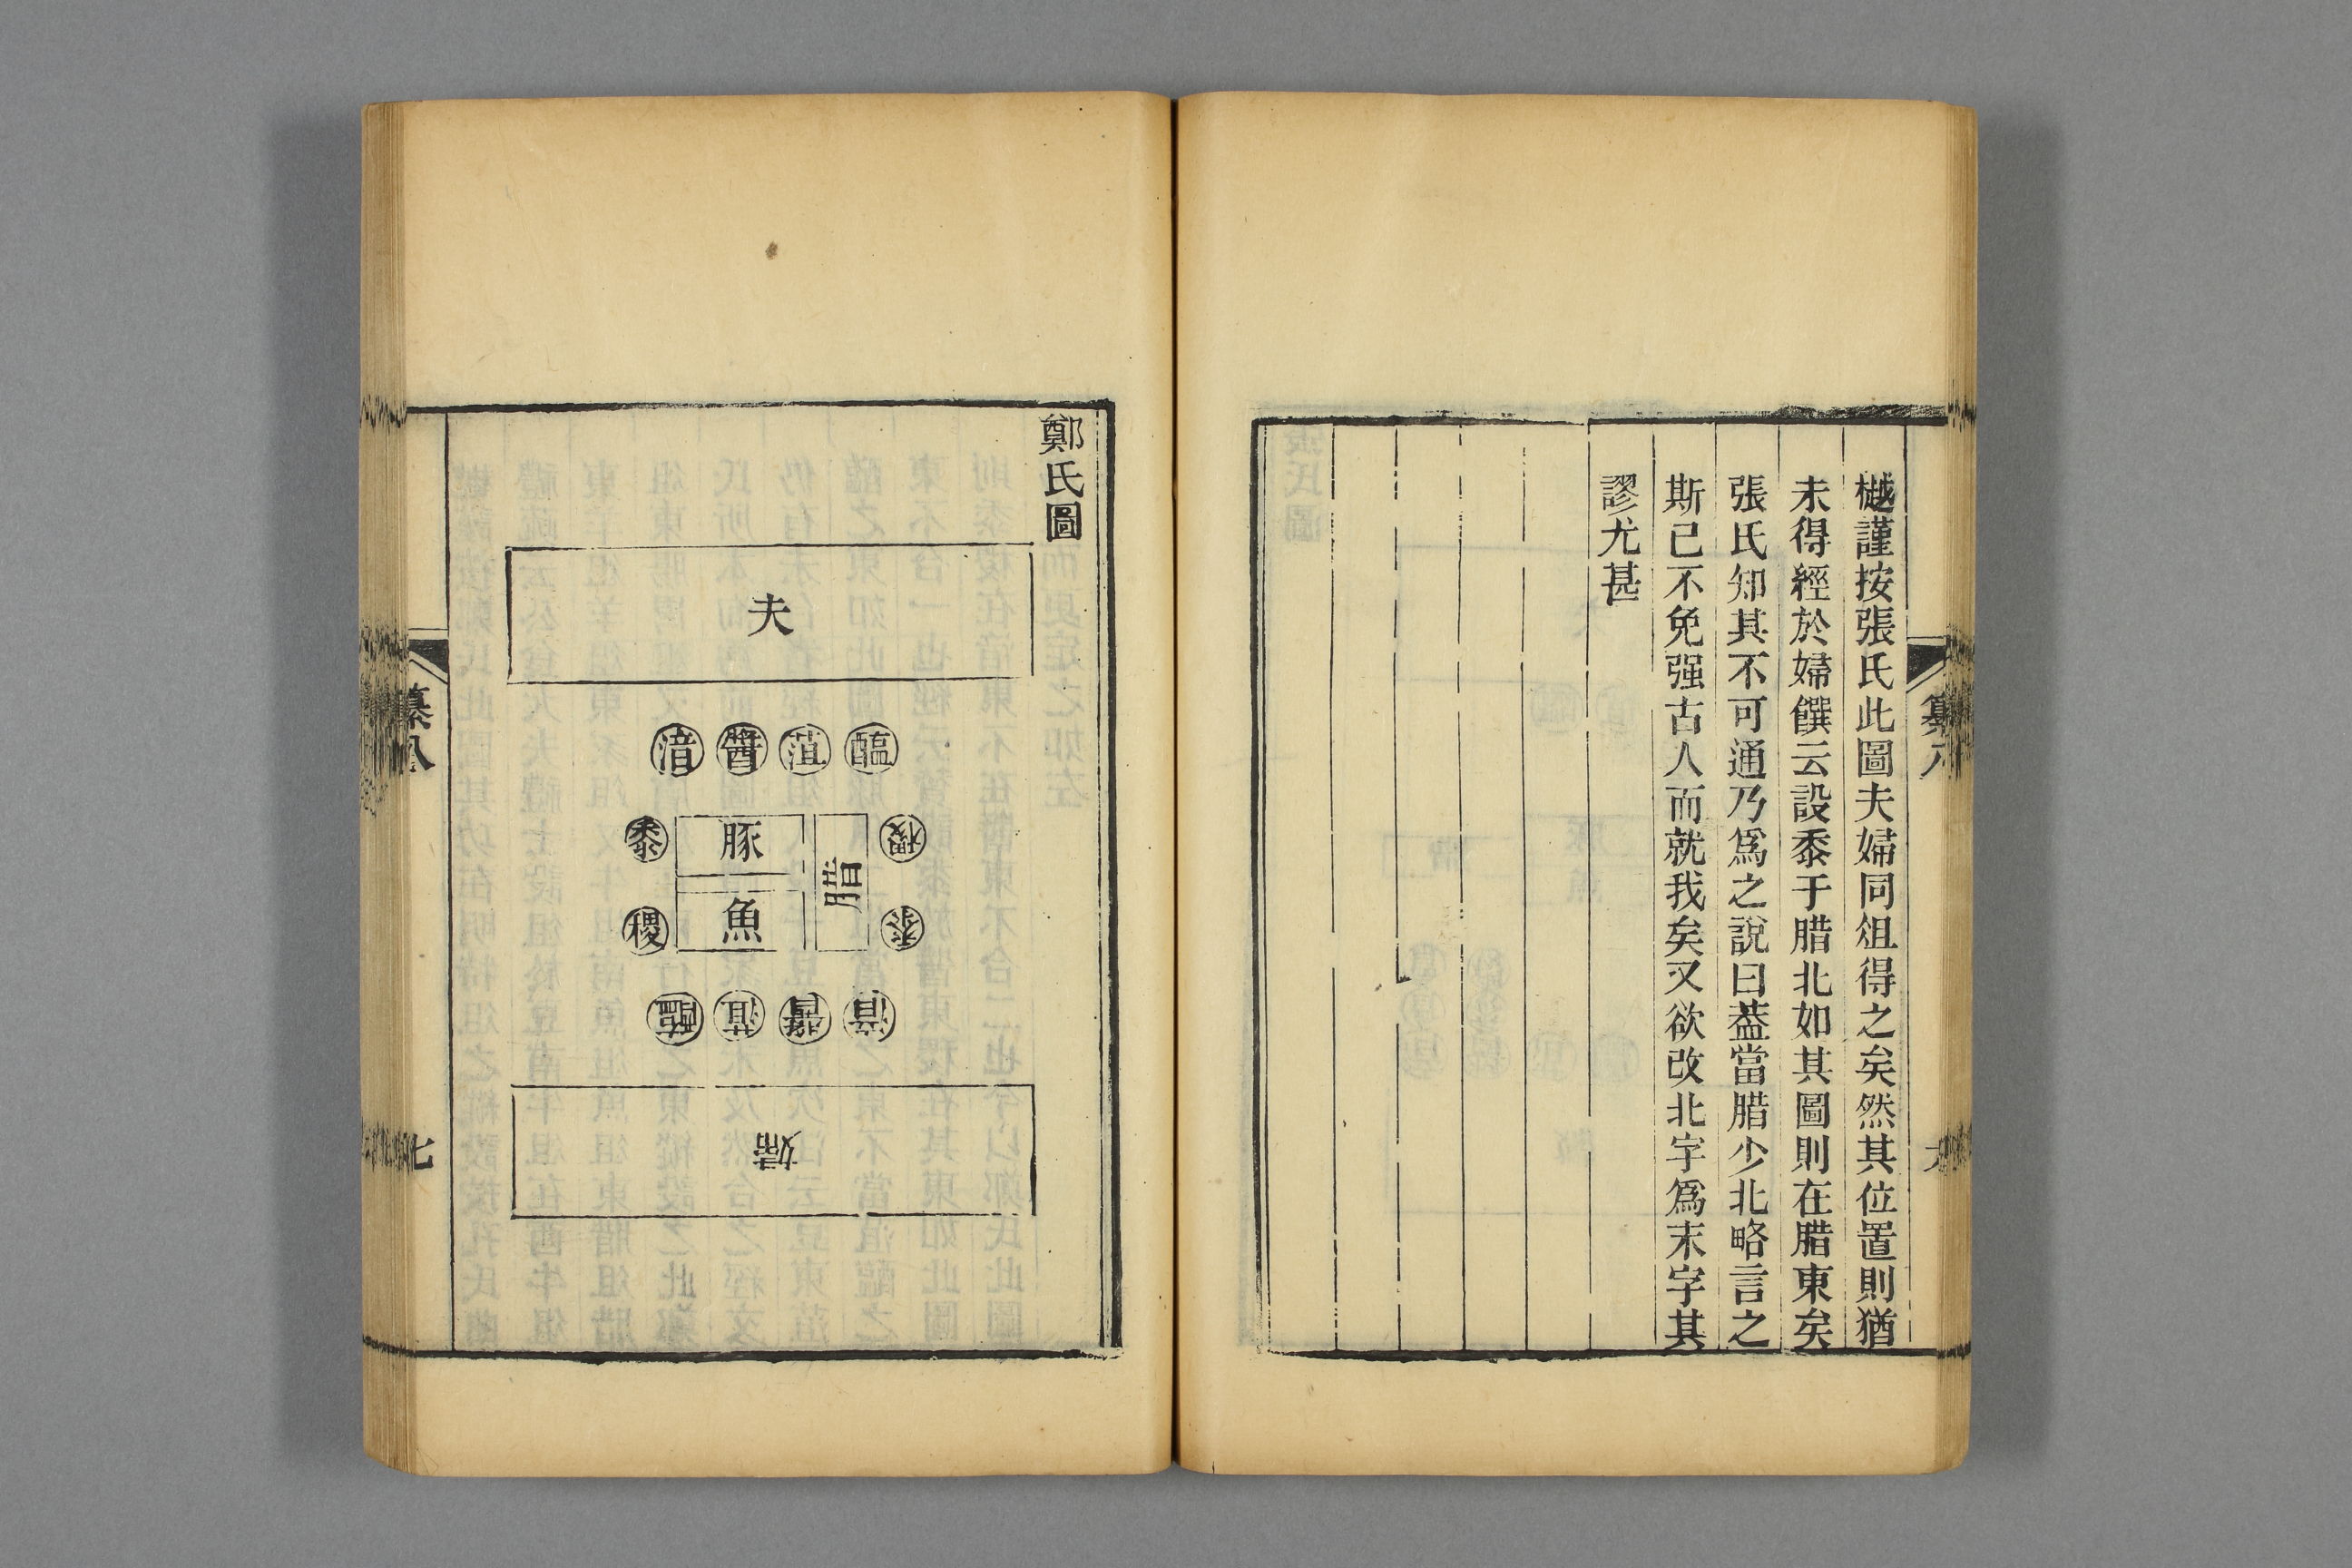 樾謹按張氏此圖夫婦同俎得之矣然其位置則猶
未得經於婦饌云設黍于腊北如其圖則在腊東矣
張氏知其不可通乃爲之說曰葢當腊少北略言之
斯已不免强古人而就我矣又欲改北字爲末字其
謬尤甚
纂八
鄭氏圖
夫
醢
菹
醬
湆
稷
黍
腊
豚
魚
黍
稷
湆
醬
菹
醢
婦
纂八
七